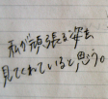 私が頑張る姿を
見てくれていると思う。